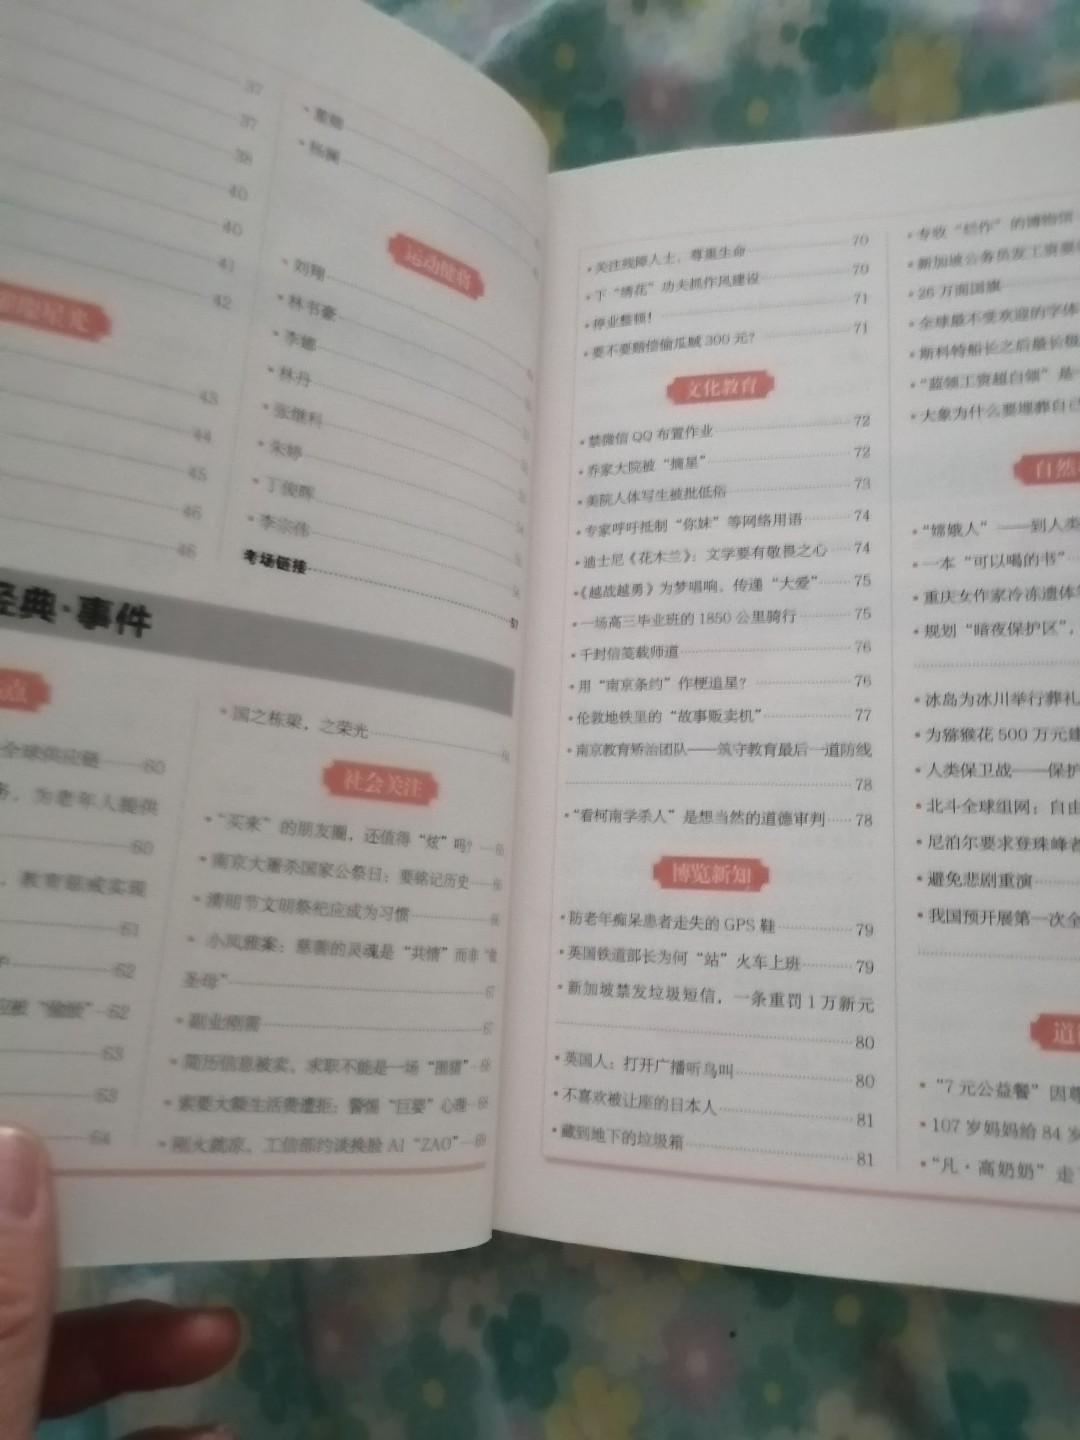 37
37
38
40
40
41
42
43
44
45
46
46
董卿
杨澜
运动健将
刘翔
林书豪
李娜
林丹
张继科
朱婷
丁俊晖
李宗伟
考场链接
经典·事件
点
全球供应链 60
，为老年人提供
60
，教育惩戒实现
61
62
62
63
63
64
·国之栋梁，之荣光
社会关注
·“买来”的朋友圈，还值得“炫”吗？
·南京大屠杀国家公祭日：要铭记历史
·清明节文明祭祀应成为习惯
·小凤雅案：慈善的灵魂是“共情”而非“
圣母” 67
·副业刚需 67
·简历信息被卖，求职不能是一场“围猎” 68
·索要大额生活费遭拒：警惕“巨婴”心理
·刚火就凉，工信部约谈换脸 AI “ZAO” 69
·关注残障人士，尊重生命 70
·下“绣花”功夫抓作风建设 70
·停业整顿！ 71
·要不要赔偿偷瓜贼 300 元？ 71
文化教育
·禁微信 QQ 布置作业 72
·乔家大院被“摘星” 72
·美院人体写生被批低俗 73
·专家呼吁抵制“你妹”等网络用语 74
·迪士尼《花木兰》：文学要有敬畏之心 74
·《越战越勇》为梦唱响，传递“大爱” 75
·一场高三毕业班的 1850 公里骑行 75
·千封信笺载师道 76
·用“南京条约”作梗追星？ 76
·伦敦地铁里的“故事贩卖机” 77
·南京教育矫治团队——筑守教育最后一道防线
78
·“看柯南学杀人”是想当然的道德审判 78
博览新知
·防老年痴呆患者走失的 GPS 鞋 79
·英国铁道部长为何“站”火车上班 79
·新加坡禁发垃圾短信，一条重罚 1 万新元
80
·英国人：打开广播听鸟叫 80
·不喜欢被让座的日本人 81
·藏到地下的垃圾箱 81
·专收“烂作”的博物馆
·新加坡公务员发工资要
·26 万面国旗
·全球最不受欢迎的字体
·斯科特船长之后最长极
·“蓝领工资超白领”是一
·大象为什么要埋葬自己
自然
·“嫦娥人”——到人类
·一本“可以喝的书”
·重庆女作家冷冻遗体
·规划“暗夜保护区”，
·冰岛为冰川举行葬礼
·为猕猴花 500 万元建
·人类保卫战——保护
·北斗全球组网：自由
·尼泊尔要求登珠峰者
·避免悲剧重演
·我国预开展第一次全
道
·“7 元公益餐”因尊
·107 岁妈妈给 84 岁
·“凡·高奶奶”走